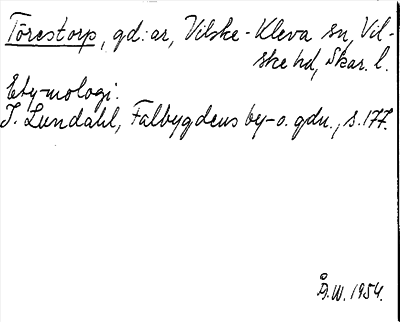 Törestorp, gd:ar, Vilske-Kleva sn, Vil-
ske hd, Skar. l.
Etymologi.
I. Lundahl, Falbygdens by- o. gdn., s. 177.
Å.W. 1954.